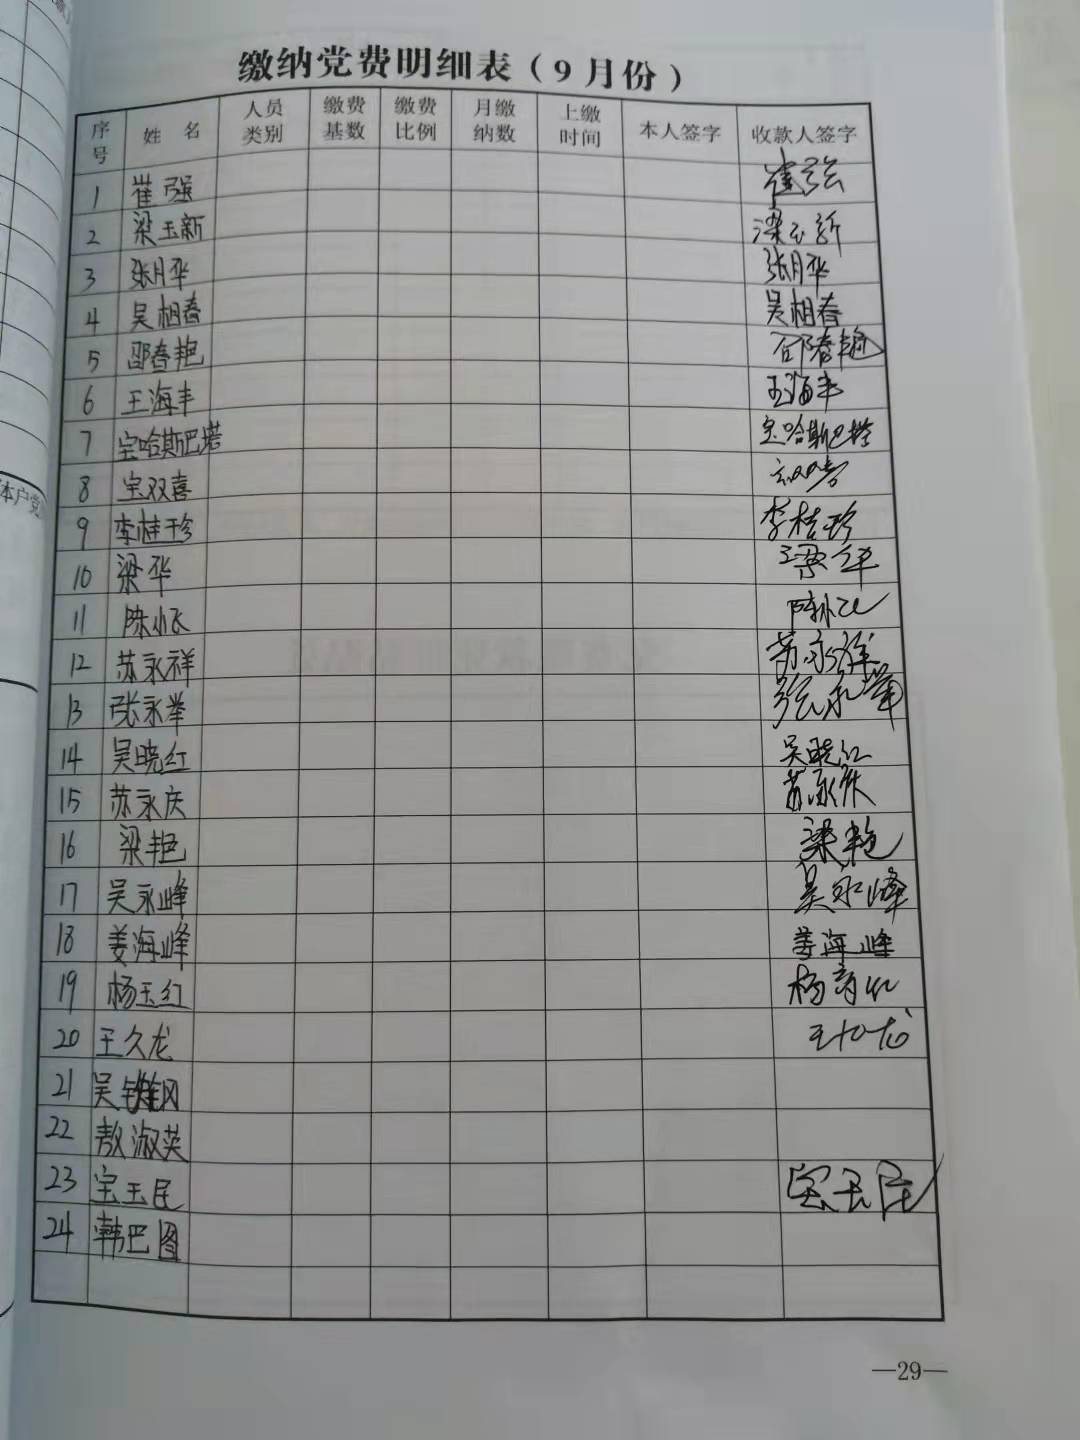 缴纳党费明细表（9月份）
序号 姓名 人员类别 缴费基数 缴费比例 月缴纳数 上缴时间 本人签字 收款人签字
1 崔强 崔强
2 梁玉新 梁玉新
3 张月华 张月华
4 吴相春 吴相春
5 邵春艳 邵春艳
6 王海丰 王海丰
7 宝哈斯巴塔 宝哈斯巴塔
8 宝双喜
9 李桂珍 李桂珍
10 梁华 梁华
11 陈小飞 陈小飞
12 苏永祥 苏永祥
13 张永举 张永举
14 吴晓红 吴晓红
15 苏永庆 苏永庆
16 梁艳 梁艳
17 吴永峰 吴永峰
18 姜海峰 姜海峰
19 杨玉红
20 王久龙 王久龙
21 吴钢
22 敖淑英
23 宝玉民 宝玉民
24 韩巴图
本户党
—29—